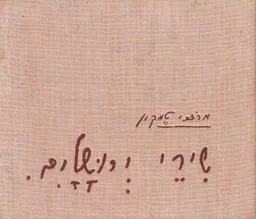 מרדכי טֶמקין
שִׁירֵי יְרוּשָׁלַיִם.